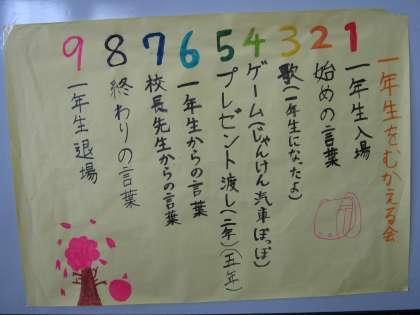 一年生をむかえる会
1 一年生入場
2 始めの言葉
3 歌(一年生になったよ)
4 ゲーム(じゃんけん汽車ぽっぽ)
5 プレゼント渡し(二年)(五年)
6 一年生からの言葉
7 校長先生からの言葉
8 終わりの言葉
9 一年生退場